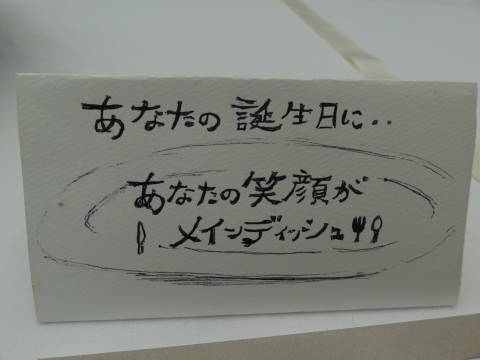 あなたの誕生日に..
あなたの笑顔が
メインディッシュ